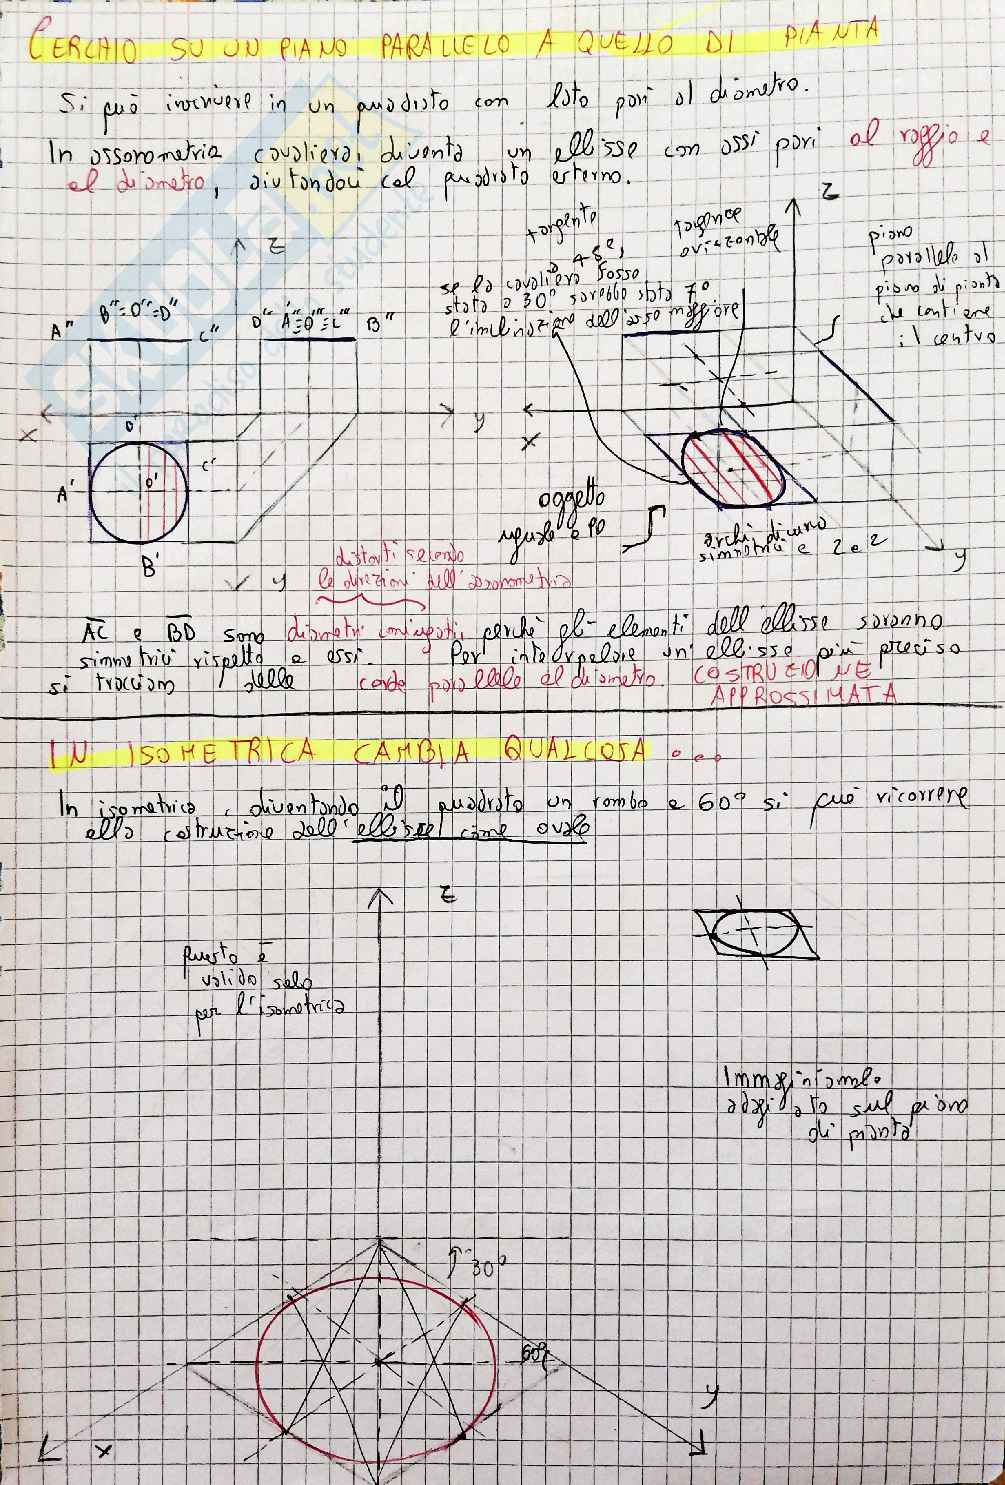 CERCHIO SU UN PIANO PARALLELO A QUELLO DI PIANTA
Si può inscrivere in un quadrato con lato pari al diametro.
In assonometria cavaliera, diventa un ellisse con assi pari al raggio e
al diametro, aiutandoci col quadrato esterno.
Z
A" B"≡O"≡D" C"
D" A"≡O"≡C" B"
X
y
D'
A' O' C'
B'
y
tangente
45°,
se la cavaliera fosse
stata a 30° sarebbe stata 7°
l'inclinazione dell'asse maggiore
tangente
orizzontale
Z
piano
parallelo al
piano di pianta
che contiene
il centro
X
oggetto
uguale a PO
archi di
simmetrici a 2 a 2
y
distorti secondo
le direzioni dell'assonometria
AC e BD sono diametri coniugati, perchè gli elementi dell'ellisse saranno
simmetrici rispetto a essi. Per interpolare un'ellisse più preciso
si tracciano delle corde parallele al diametro. COSTRUZIONE
APPROSSIMATA
IN ISOMETRICA CAMBIA QUALCOSA ...
In isometrica, diventando il quadrato un rombo a 60° si può ricorrere
alla costruzione dell'ellisse come ovale
Z
questo è
valido solo
per l'isometrica
Immaginiamolo
adagiato sul piano
di pianta
30°
60°
X
y